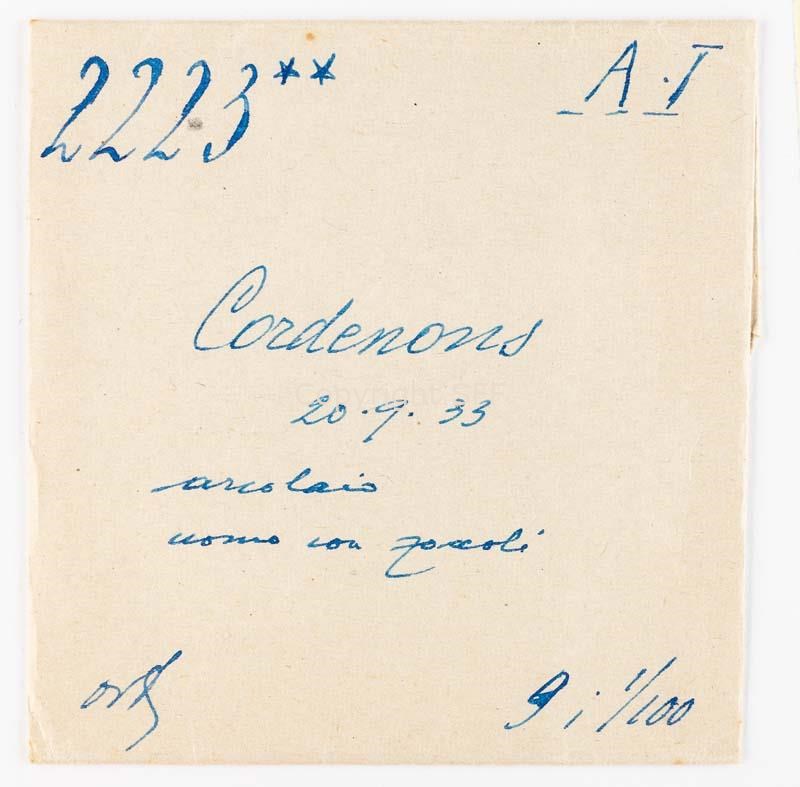 2223**
A.I
Cordenons
Copyright SFF
20.9.33
arcolaio
uomo con zoccoli
orth
9 ; 1/100